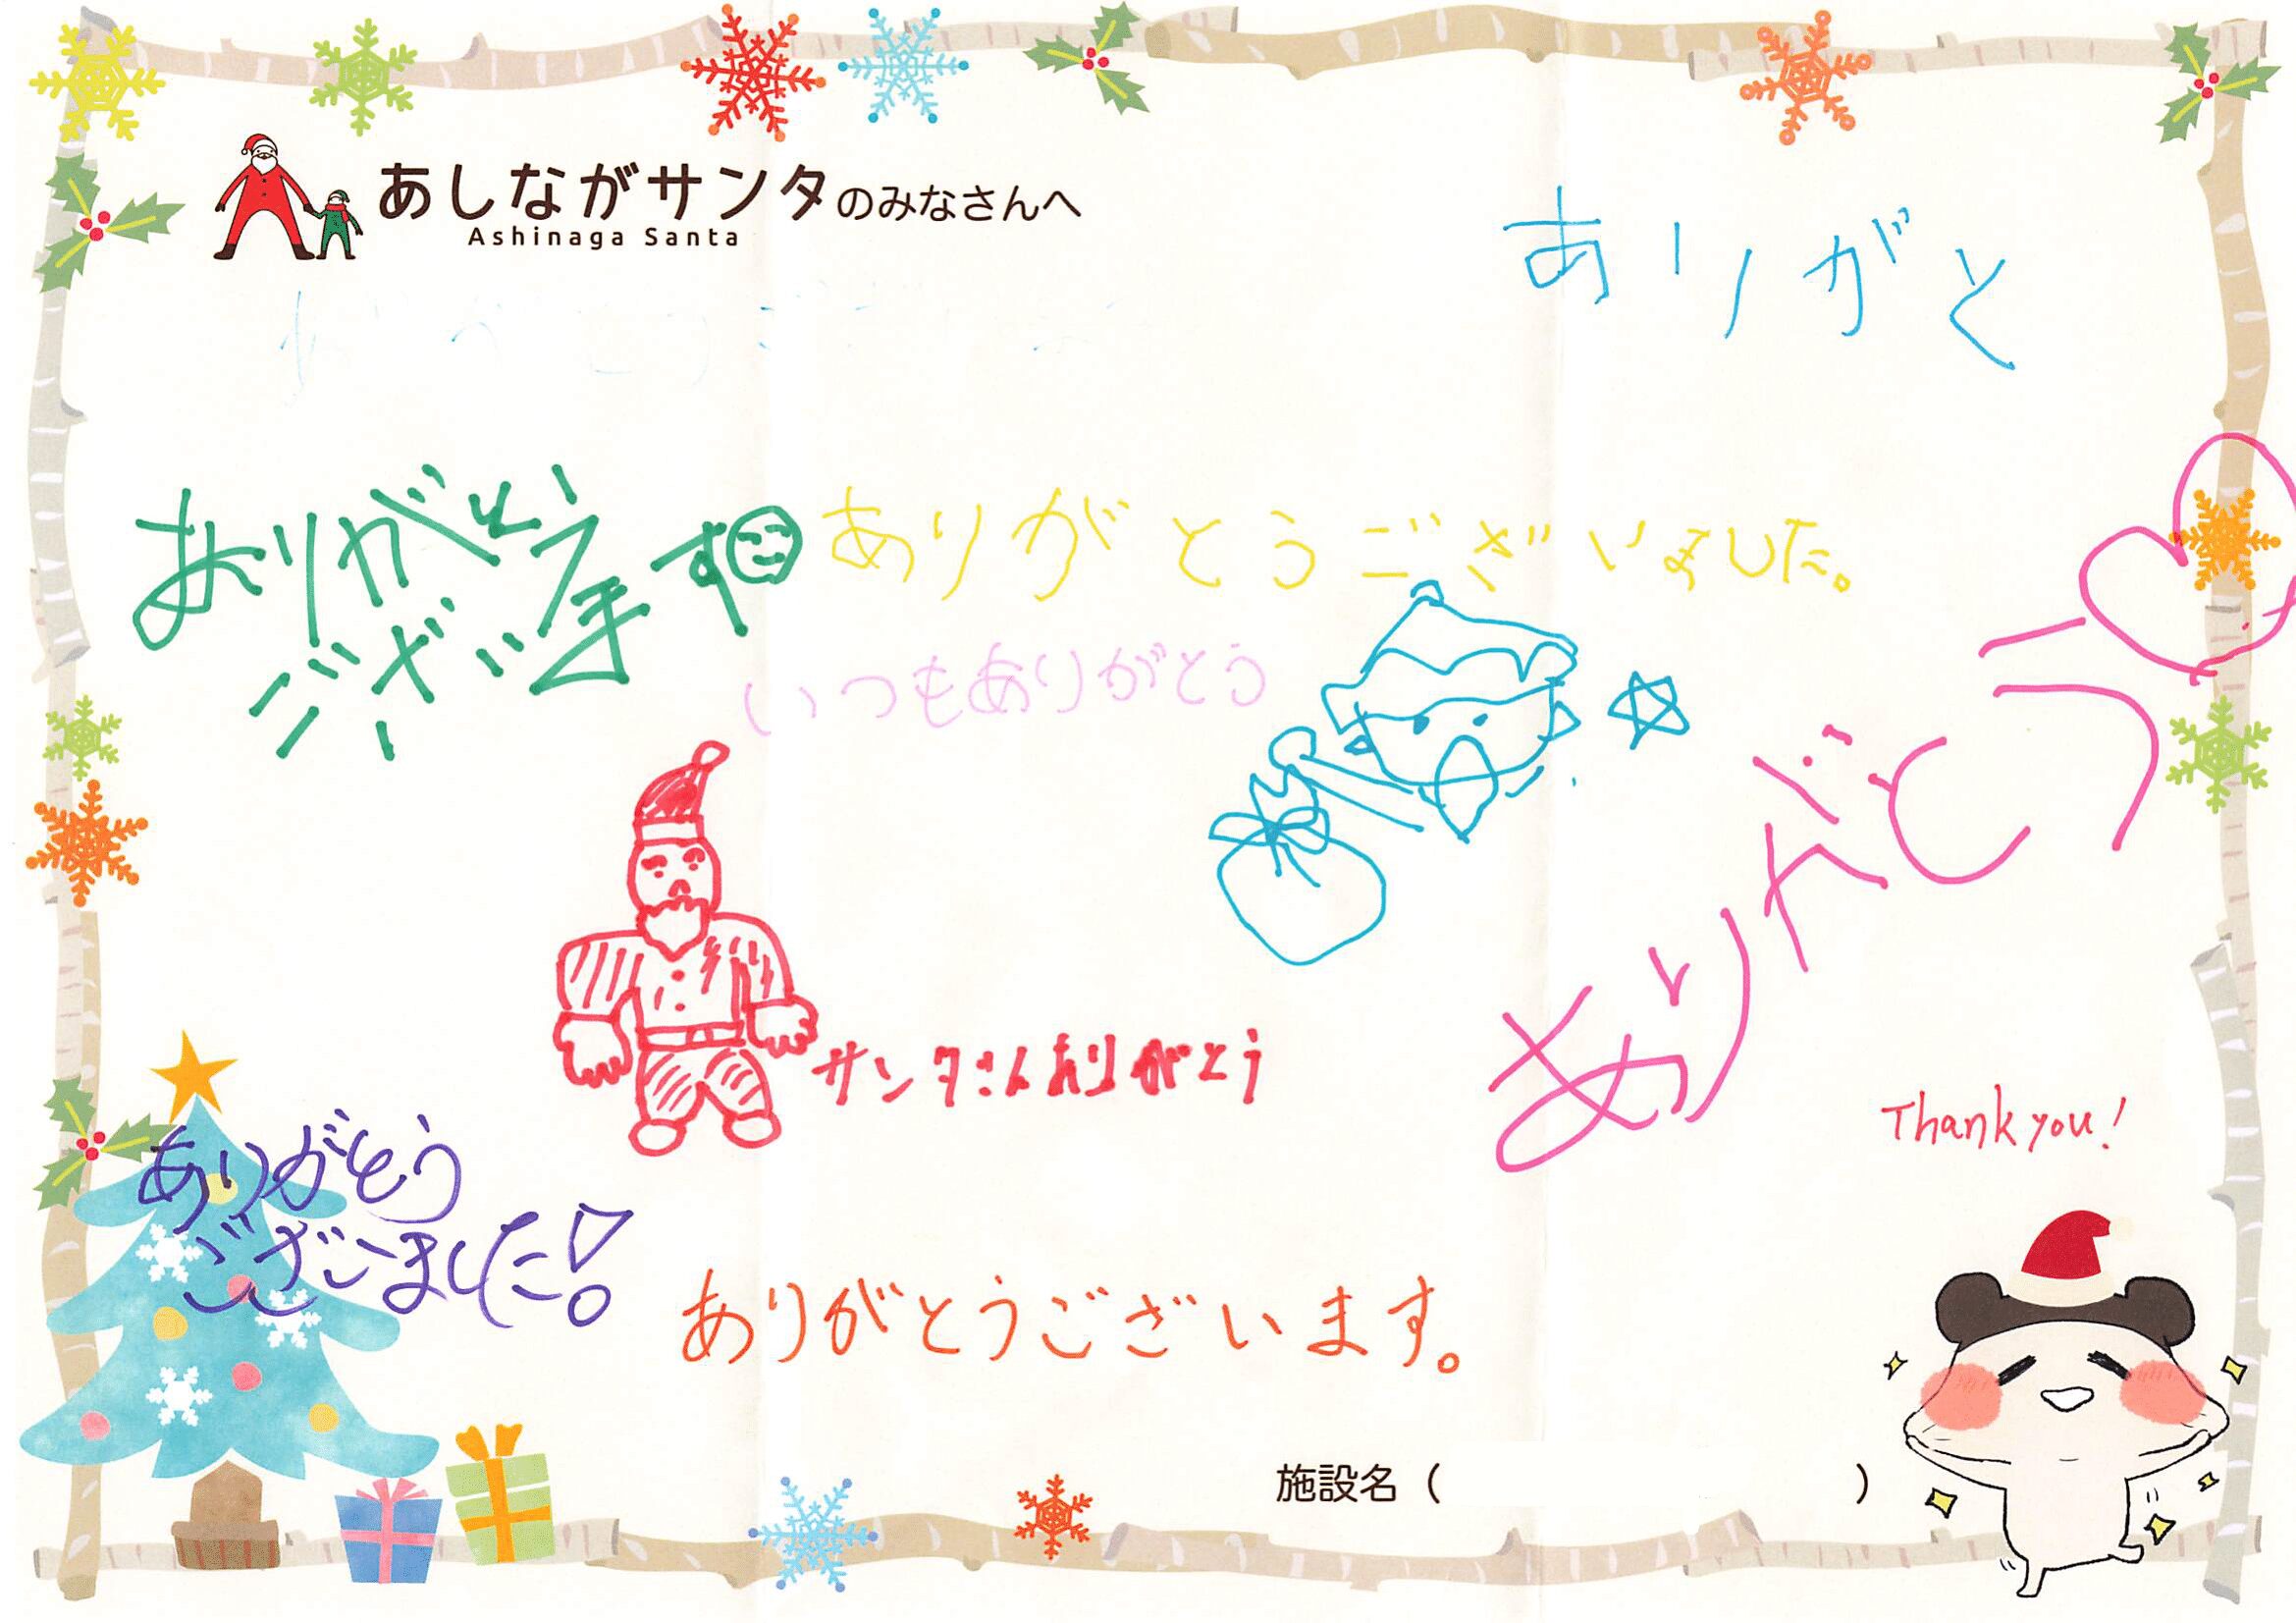 あしながサンタのみなさんへ
Ashinaga Santa
ありがと
ありがとう
ござい手す
ありがとうございました。
いつもありがとう
ありがとう
サンタさんありがとう
Thank you!
ありがとう
ございました!
ありがとうございます。
施設名（　　　）